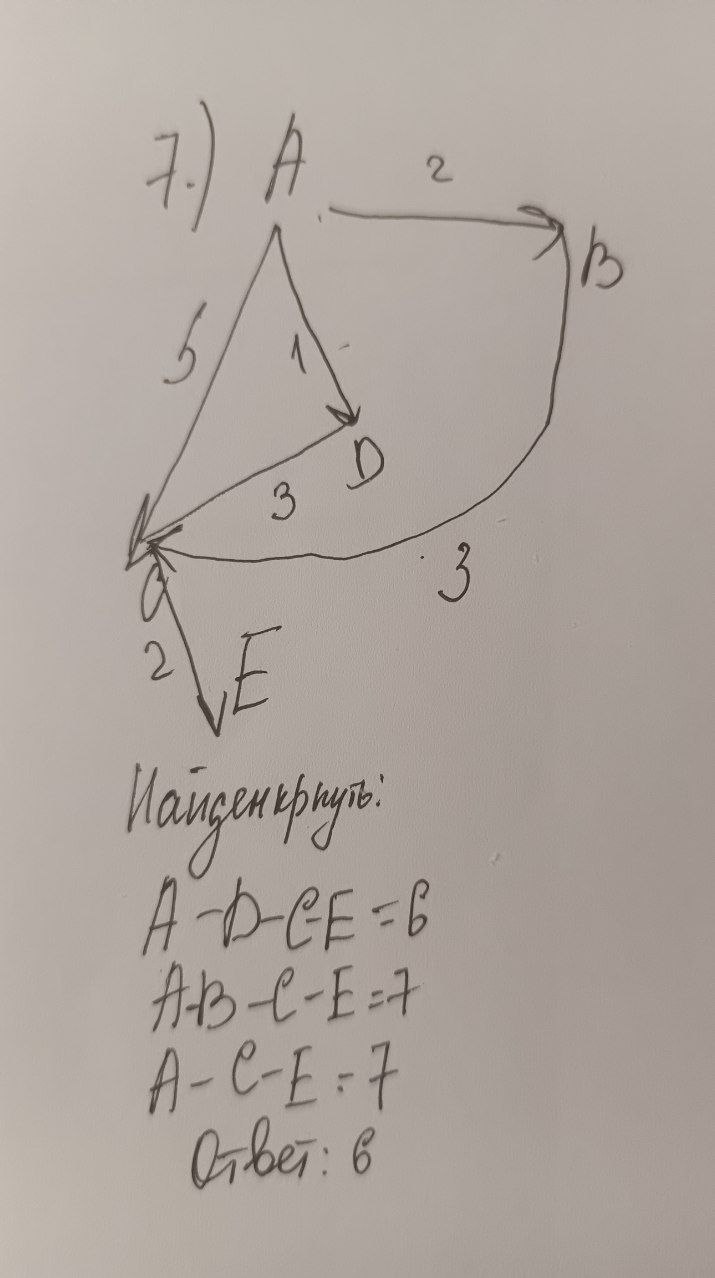 7.) A
2
B
5
1
D
3
3
C
2
E
Найден кр путь:
A-D-C-E=6
A-B-C-E=7
A-C-E=7
Ответ: 6